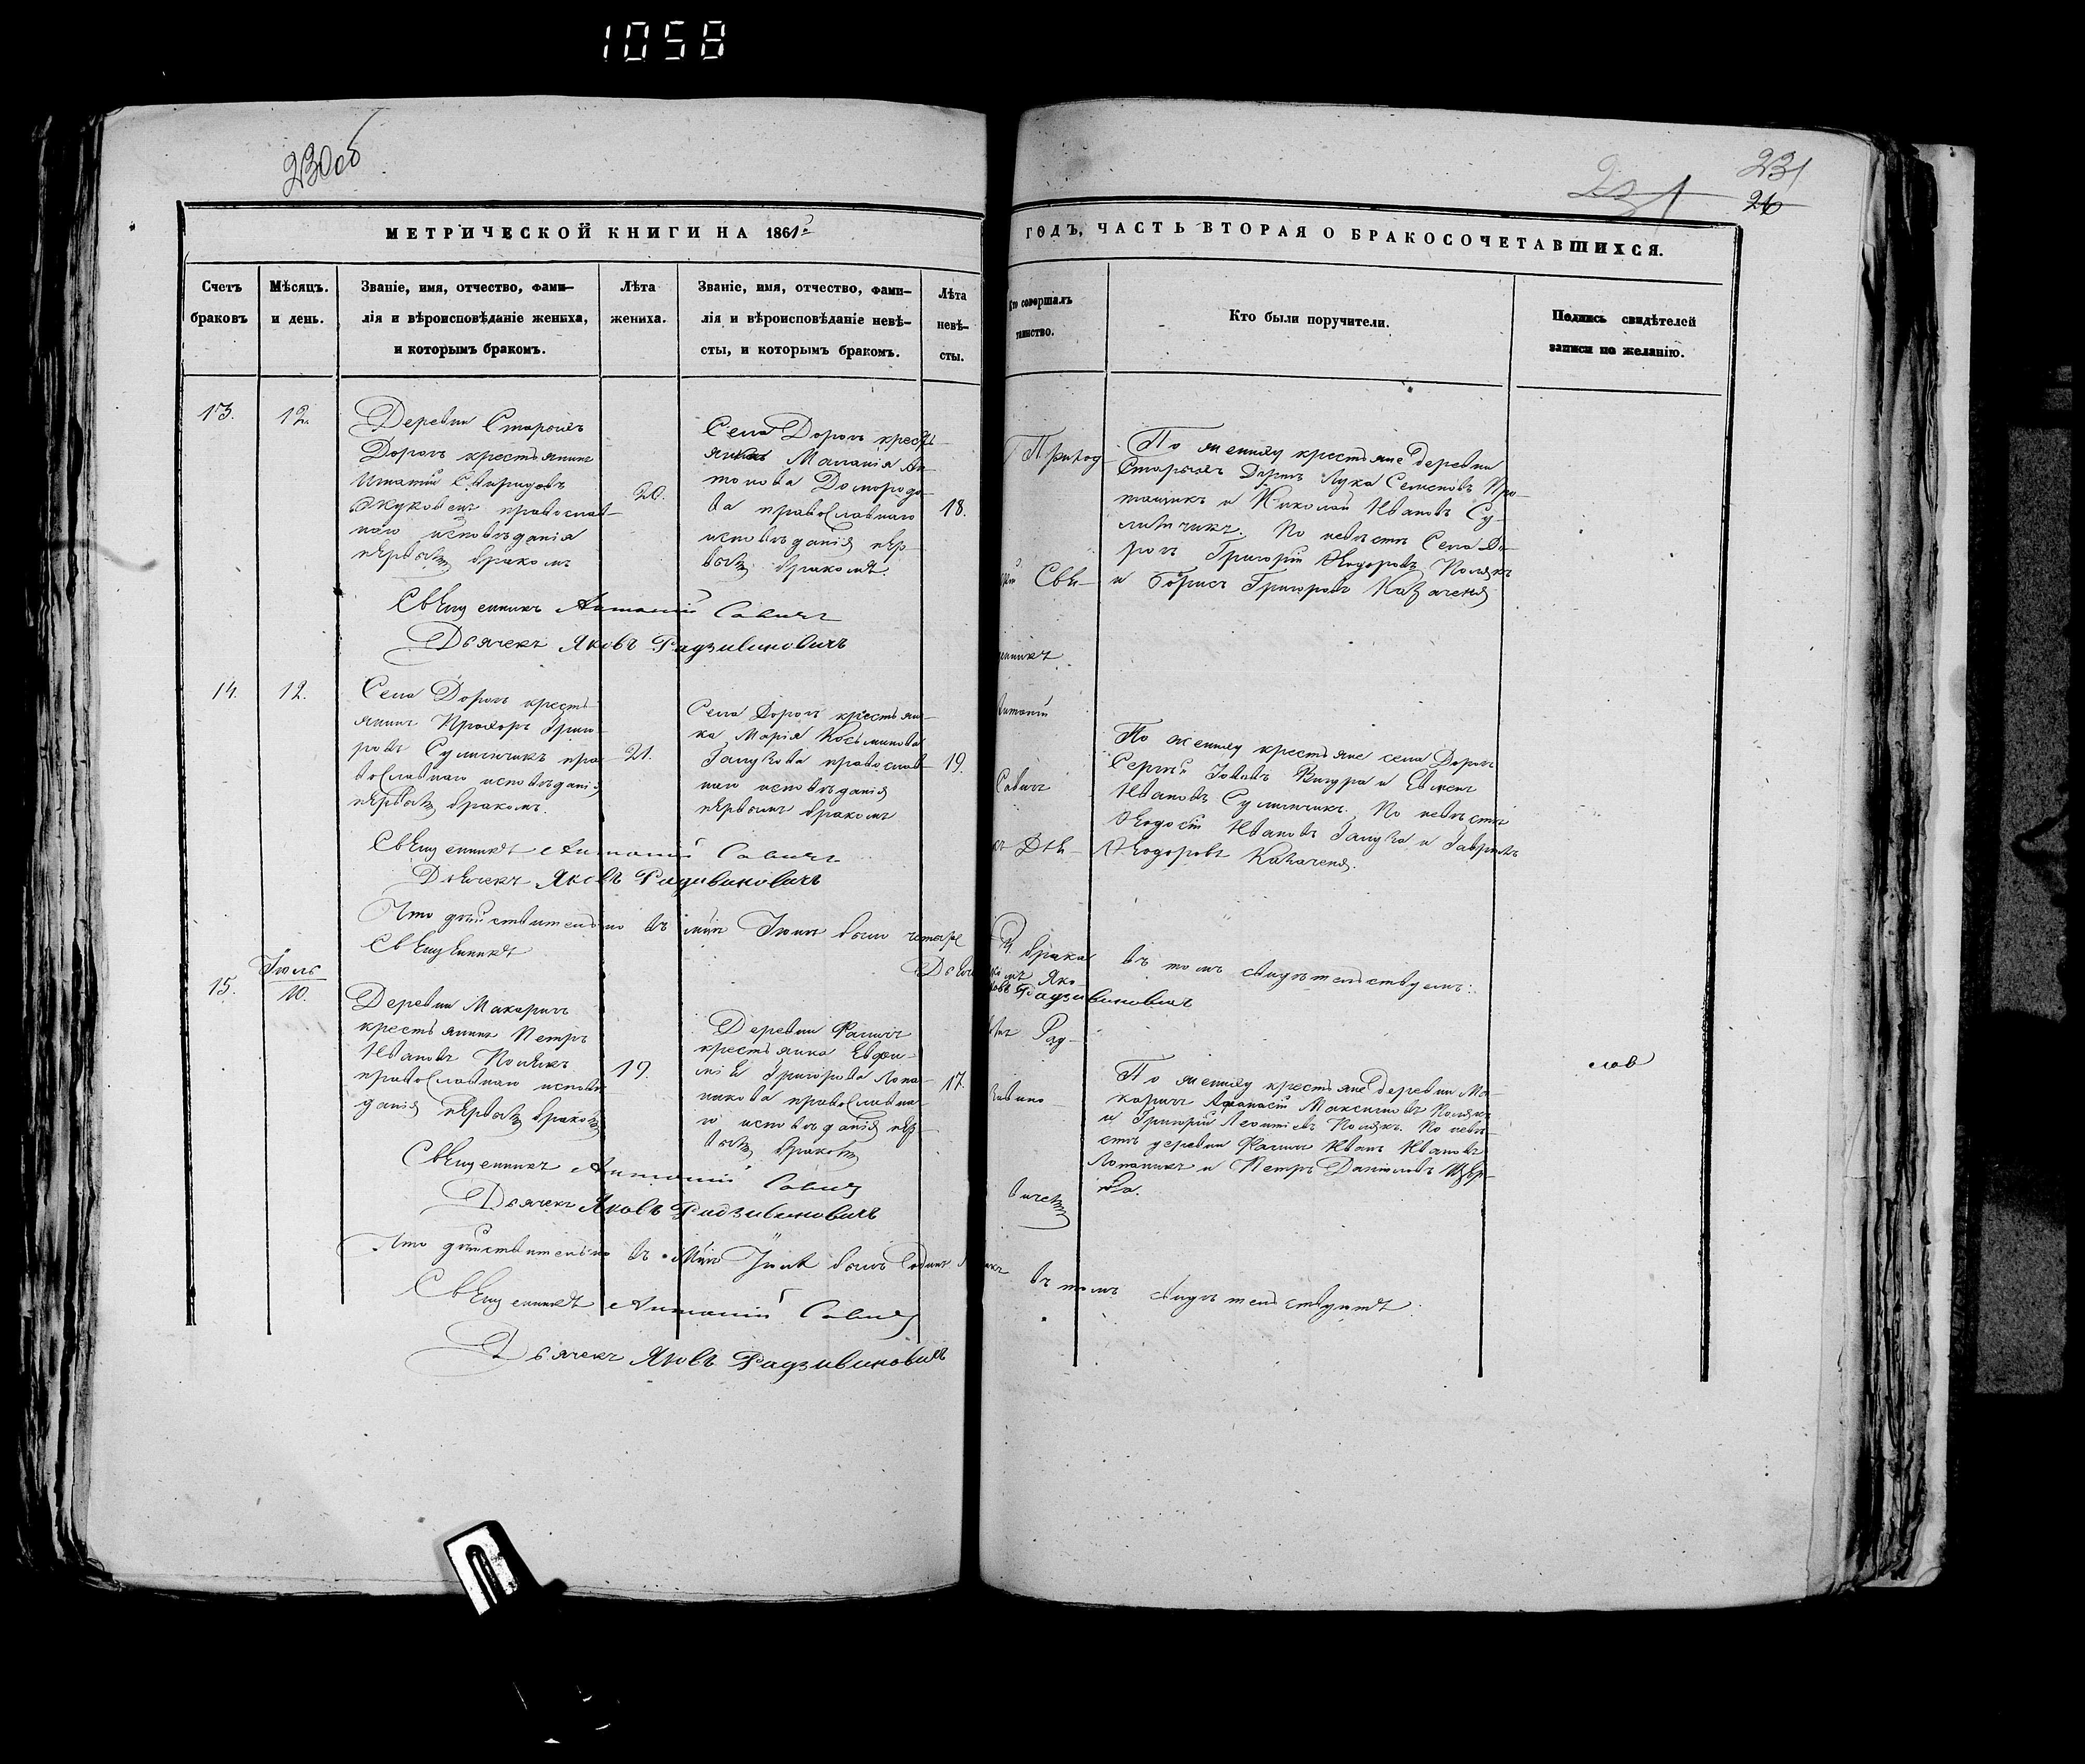 1058
230об
231
231
26
МЕТРИЧЕСКОЙ КНИГИ НА 1861й
ГОДЪ, ЧАСТЬ ВТОРАЯ О БРАКОСОЧЕТАВШИХСЯ.
Счетъ
браковъ
Мѣсяцъ.
и день.
Званіе, имя, отчество, фами-
лія и вѣроисповѣданіе жениха,
и которымъ бракомъ.
Лѣта
жениха.
Званіе, имя, отчество, фами-
лія и вѣроисповѣданіе невѣ-
сты, и которымъ бракомъ.
Лѣта
невѣ-
сты.
Кто совершалъ
таинство.
Кто были поручители.
Подпись свидѣтелей
записи по желанію.
13.
12.
Деревни Старыхъ
Дорогъ крестьянинъ
Игнатій Свиридовъ
православ-
наго исповѣданія
первымъ бракомъ
20.
Села Дорогъ кресть-
янка Маланія Ан-
тонова Доморадо-
ва православнаго
исповѣданія пер-
вымъ бракомъ.
18.
Приход-
По жениху крестьяне деревни
Старыхъ Дорогъ Лука Семеновъ Про-
и Николай Ивановъ Су-
По невѣстѣ Села До-
рогъ Григорій Ѳеодоровъ Полякъ
и Борисъ Григоровъ Казаченя
Свя-
Священникъ Антоній Савичъ
Дьячекъ Яковъ Радзивиновичъ
щенникъ
14.
12.
Села Дорогъ кресть-
янинъ Прохоръ Григо-
ровъ Сулимчикъ пра-
вославнаго исповѣданія
первымъ бракомъ.
21.
Села Дорогъ крестьян-
ка Марія Косьминова
Галузова православ-
наго исповѣданія
первымъ бракомъ
19.
Антоній
Савичъ
По жениху крестьяне села Дорогъ
Сергій Іовлевъ Вигура и Евмен
Ивановъ Сулимчикъ. По невѣстѣ
Ѳеодосій Ивановъ Галуза и Гавріилъ
Ѳеодоровъ Казаченя.
Священникъ Антоній Савичъ
Дьячекъ Яковъ Радзивиновичъ
Что дѣйствительно въ мцѣ Іюнѣ было четыре брака въ томъ свидѣтельствуемъ:
Священникъ
Дьячекъ
Радзивиновичъ
15.
Іюль
10.
Деревни Макаричъ
крестьянинъ Петръ
Ивановъ Полякъ
православнаго исповѣ-
данія первымъ бракомъ
19.
Деревни Фаличъ
крестьянка Евфи-
мія Григорова Лопа-
никова православна-
го исповѣданія пер-
вымъ бракомъ
17.
Рад-
зивино-
вичемъ
По жениху крестьяне деревни Ма-
каричъ Аѳанасій Максимовъ Полякъ
и Григорій Леонтіевъ Полякъ. По невѣ-
стѣ деревни Фаличъ Иванъ Ивановъ
Лопаникъ и Петръ Даніиловъ Щер-
ба.
слов
Священникъ Антоній Савичъ
Дьячекъ Яковъ Радзивиновичъ
Что дѣйствительно въ мцѣ Іюлѣ былъ одинъ бракъ въ томъ свидѣтельствуютъ.
Священникъ Антоній Савичъ
Дьячекъ Яковъ Радзивиновичъ